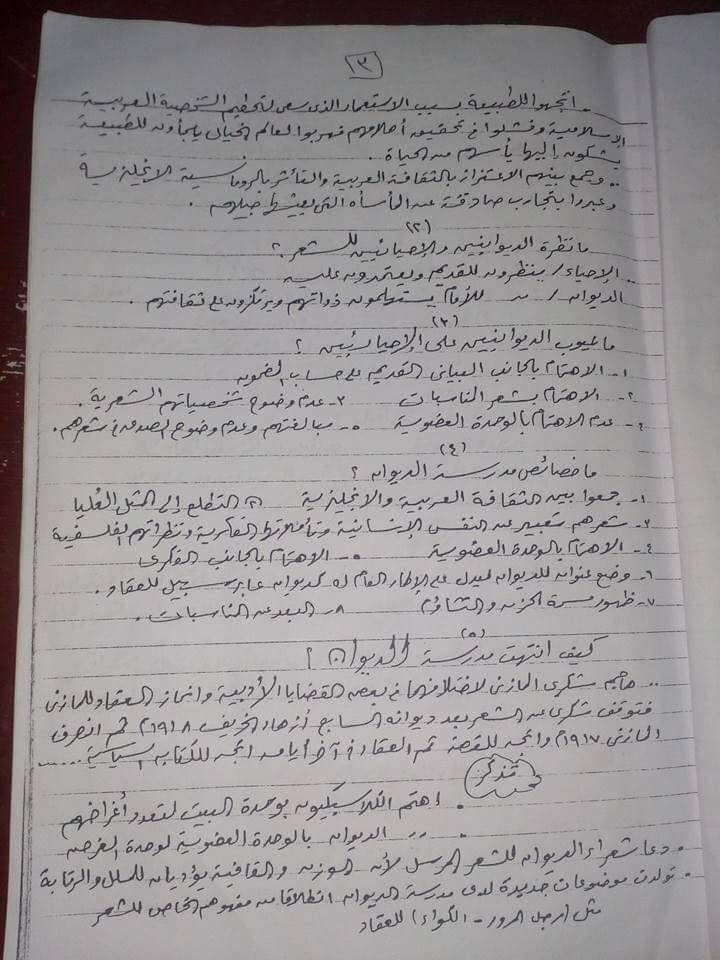 ١٣
.. اتجهوا للطبيعة بسبب الاستعمار الذى سعى لتحطيم الشخصية العربية
الإسلامية وفشلوا فى تحقيق أحلامهم فهربوا لعالم الخيال يلجأون للطبيعة
يشكون إليها يأسهم من الحياة .
.. وجمع بينهم الاعتزاز بالثقافة العربية والتأثر بالرومانسية الإنجليزية
وعبروا بتجارب صادقة عن المأساه التى يعيشها جيلهم .
(٢)
ما نظرة الديوانيين والإحيائيين للشعر ؟
.. الإحياء / ينظرون للقديم ويعتمدون عليه
الديوان / .. للأمام يستلهمون ذواتهم ويرتكزون على ثقافتهم .
(٣)
ما عيوب الديوانيين على الإحيائيين ؟
١- الاهتمام بالجانب البيانى القديم على حساب المضمون
٢- الاهتمام بشعر المناسبات ٣- عدم وضوح شخصياتهم الشعرية .
٤- عدم الاهتمام بالوحدة العضوية ٥- مبالغتهم وعدم وضوح الصدق فى شعرهم .
(٤)
ما خصائص مدرسة الديوان ؟
١- جمعوا بين الثقافة العربية والإنجليزية ٢) التطلع إلى المثل العُليا
٣- شعرهم تعبير عن النفس الإنسانية وتأملاتها الفكرية ونظراتهم الفلسفية
٤- الاهتمام بالوحدة العضوية ٥- الاهتمام بالجانب الفكرى
٦- وضع عنوان للديوان ليدل على الإطار العام له كديوان عابر سبيل للعقاد .
٧- ظهور مسحة الحزن والتشاؤم ٨- البعد عن المناسبات .
(٥)
كيف انتهت مدرسة الديوان ؟
.. هاجم شكرى المازنى لاختلافهما فى بعض القضايا الأدبية وانحاز العقاد للمازنى
فتوقف شكرى عن الشعر بعد ديوانه السابع أزهار الخريف ١٩١٨م ثم انصرف
المازنى ١٩١٧م واتجه للقصة ثم العقاد فى آخر أيامه اتجه للكتابة السياسية .....
تذكر
. اهتم الكلاسيكيون بوحدة البيت لتعدد أغراضهم
. .. الديوان بالوحدة العضوية لوحدة الغرض
. دعا شعراء الديوان للشعر المرسل لأن الوزن والقافية يؤديان للملل والرتابة
. تولدت موضوعات جديدة لدى مدرسة الديوان انطلاقا من مفهومهم الخاص للشعر
مثل (رجل المرور - الكواء) للعقاد